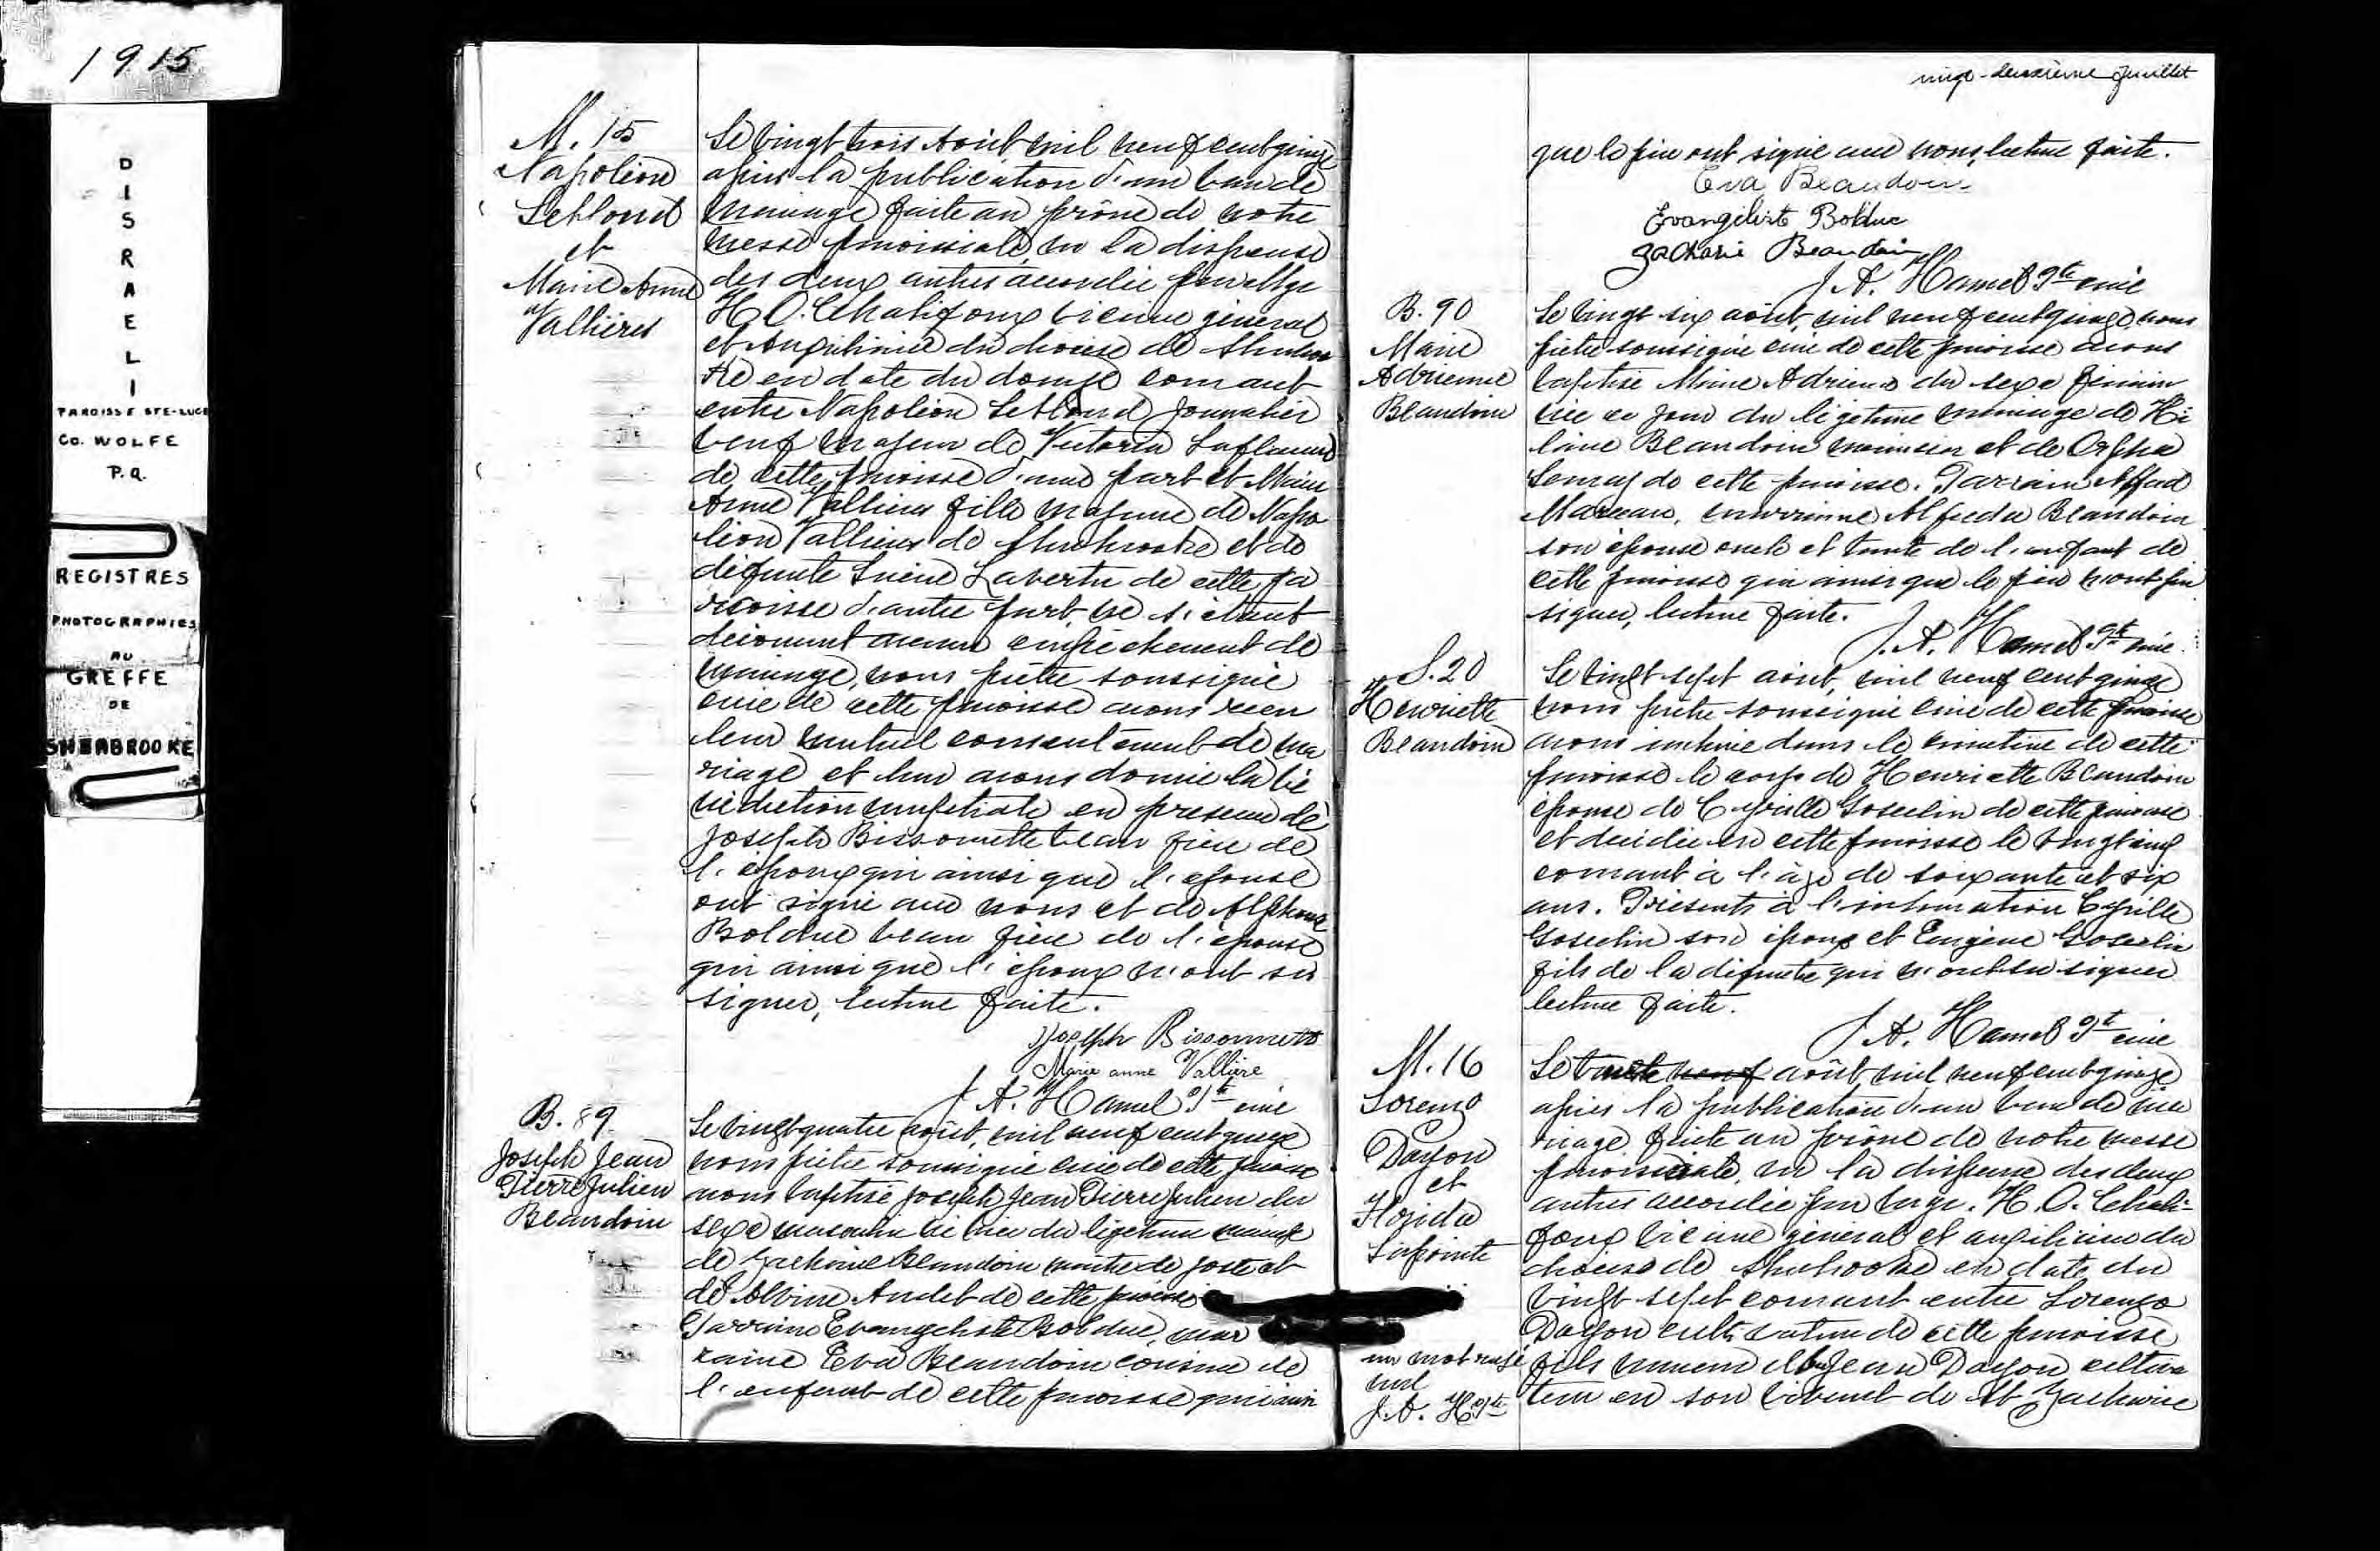 1915
DISRAELI
PAROISSE STE-LUCE
Co. WOLFE
P.Q.
REGISTRES
PHOTOGRAPHIES
AU
GREFFE
DE
SHERBROOKE
M. 15
Napoléon
Leblond
et
Marie Anne
Vallières
Le vingt trois Août mil neuf cent quinze
après la publication d'un ban de
mariage faite au prône de notre
messe paroissiale, vu la dispense
des deux autres accordée par Mgr
H. O. Chalifoux vicaire général
et auxiliaire du diocèse de Sherbroo
ke en date du douze courant
entre Napoléon Leblond journalier
veuf majeur de Victoria Laflamme
de cette paroisse d'une part et Marie
Anne Vallières fille majeure de Napo
léon Vallières de Sherbrooke et de
défunte Lavertu de cette pa
roisse d'autre part, ne s'étant
découvert aucun empêchement de
mariage, nous prêtre soussigné
curé de cette paroisse avons reçu
leur mutuel consentement de ma
riage et leur avons donné la bé
nédiction nuptiale en présence de
Joseph Bissonnette beau frère de
l'époux qui ainsi que l'épouse
ont signé avec nous et de Alphonse
Bolduc beau frère de l'épouse
qui ainsi que l'époux n'ont su
signer, lecture faite.
Joseph Bissonnette
Marie anne Vallière
J. A. Hamel Ptre curé
B. 89
Joseph Jean
Pierre Julien
Beaudoin
Le vingt quatre août, mil neuf cent quinze
nous prêtre soussigné curé de cette paroisse
avons baptisé Joseph Jean Pierre Julien du
sexe masculin né du légitime mariage
de Zacharie Beaudoin maître de poste et
de Alvine Audet de cette paroisse
Parrain Evangeliste Bolduc, mar
raine Eva Beaudoin cousine de
l'enfant de cette paroisse qui ainsi
vingt-deuxième feuillet
que le père ont signé avec nous, lecture faite.
Eva Beaudoin
Evangeliste Bolduc
Zacharie Beaudoin
J. A. Hamel Ptre curé
B. 90
Marie
Adrienne
Beaudoin
Le vingt six août, mil neuf cent quinze, nous
prêtre soussigné curé de cette paroisse avons
baptisé Marie Adrienne du sexe féminin
née ce jour du légitime mariage de Hi
laire Beaudoin menuisier et de Orpha
Lemay de cette paroisse. Parrain Alfred
Marceau, marraine Alfreda Beaudoin
son épouse oncle et tante de l'enfant de
cette paroisse qui ainsi que le père n'ont pu
signer, lecture faite.
J. A. Hamel Ptre curé
S. 20
Henriette
Beaudoin
Le vingt sept août, mil neuf cent quinze
nous prêtre soussigné curé de cette paroisse
avons inhumé dans le cimetière de cette
paroisse le corps de Henriette Beaudoin
épouse de Cyrille Gosselin de cette paroisse
et décédée en cette paroisse le vingt cinq
courant à l'âge de soixante et six
ans. Présents à l'inhumation Cyrille
Gosselin son époux et Eugène Gosselin
fils de la défunte qui n'ont su signer
lecture faite.
J. A. Hamel Ptre curé
M. 16
Lorenzo
Doyon
et
Florida
Lapointe
Le trente neuf août mil neuf cent quinze
après la publication d'un ban de ma
riage faite au prône de notre messe
paroissiale, vu la dispense des deux
autres accordée par Mgr. H. O. Chali-
foux vicaire général et auxiliaire du
diocèse de Sherbrooke en date du
vingt sept courant entre Lorenzo
Doyon cultivateur de cette paroisse
fils mineur de Jean Doyon cultiva
teur en son vivant de St Zacharie
un mot rayé
nul
J. A. H. Ptre